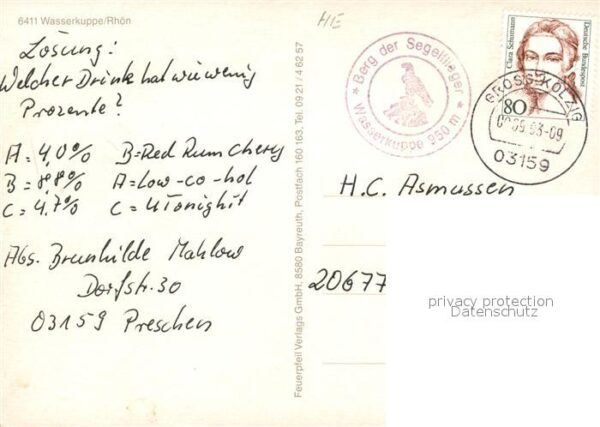 6411 Wasserkuppe/Rhön
HE
Lösung:
Welcher Drink hat wieviel
Prozente?
A = 4,0% B = Red Rum Cherry
B = 8.8% A = Low-co-hol
C = 4.7% C = U Tonight
Abs. Brunhilde Mahlow
Dorfstr. 30
03159 Preschen
Feuerpfeil Verlags GmbH, 8580 Bayreuth, Postfach 160 163, Tel. 09 21 / 4 62 57
Berg der Segelflieger
Wasserkuppe 950 m
Clara Schumann
Deutsche Bundespost
80
GROSS KÖLZIG
.09.93-09
03159
H.C. Asmussen
20677
privacy protection
Datenschutz